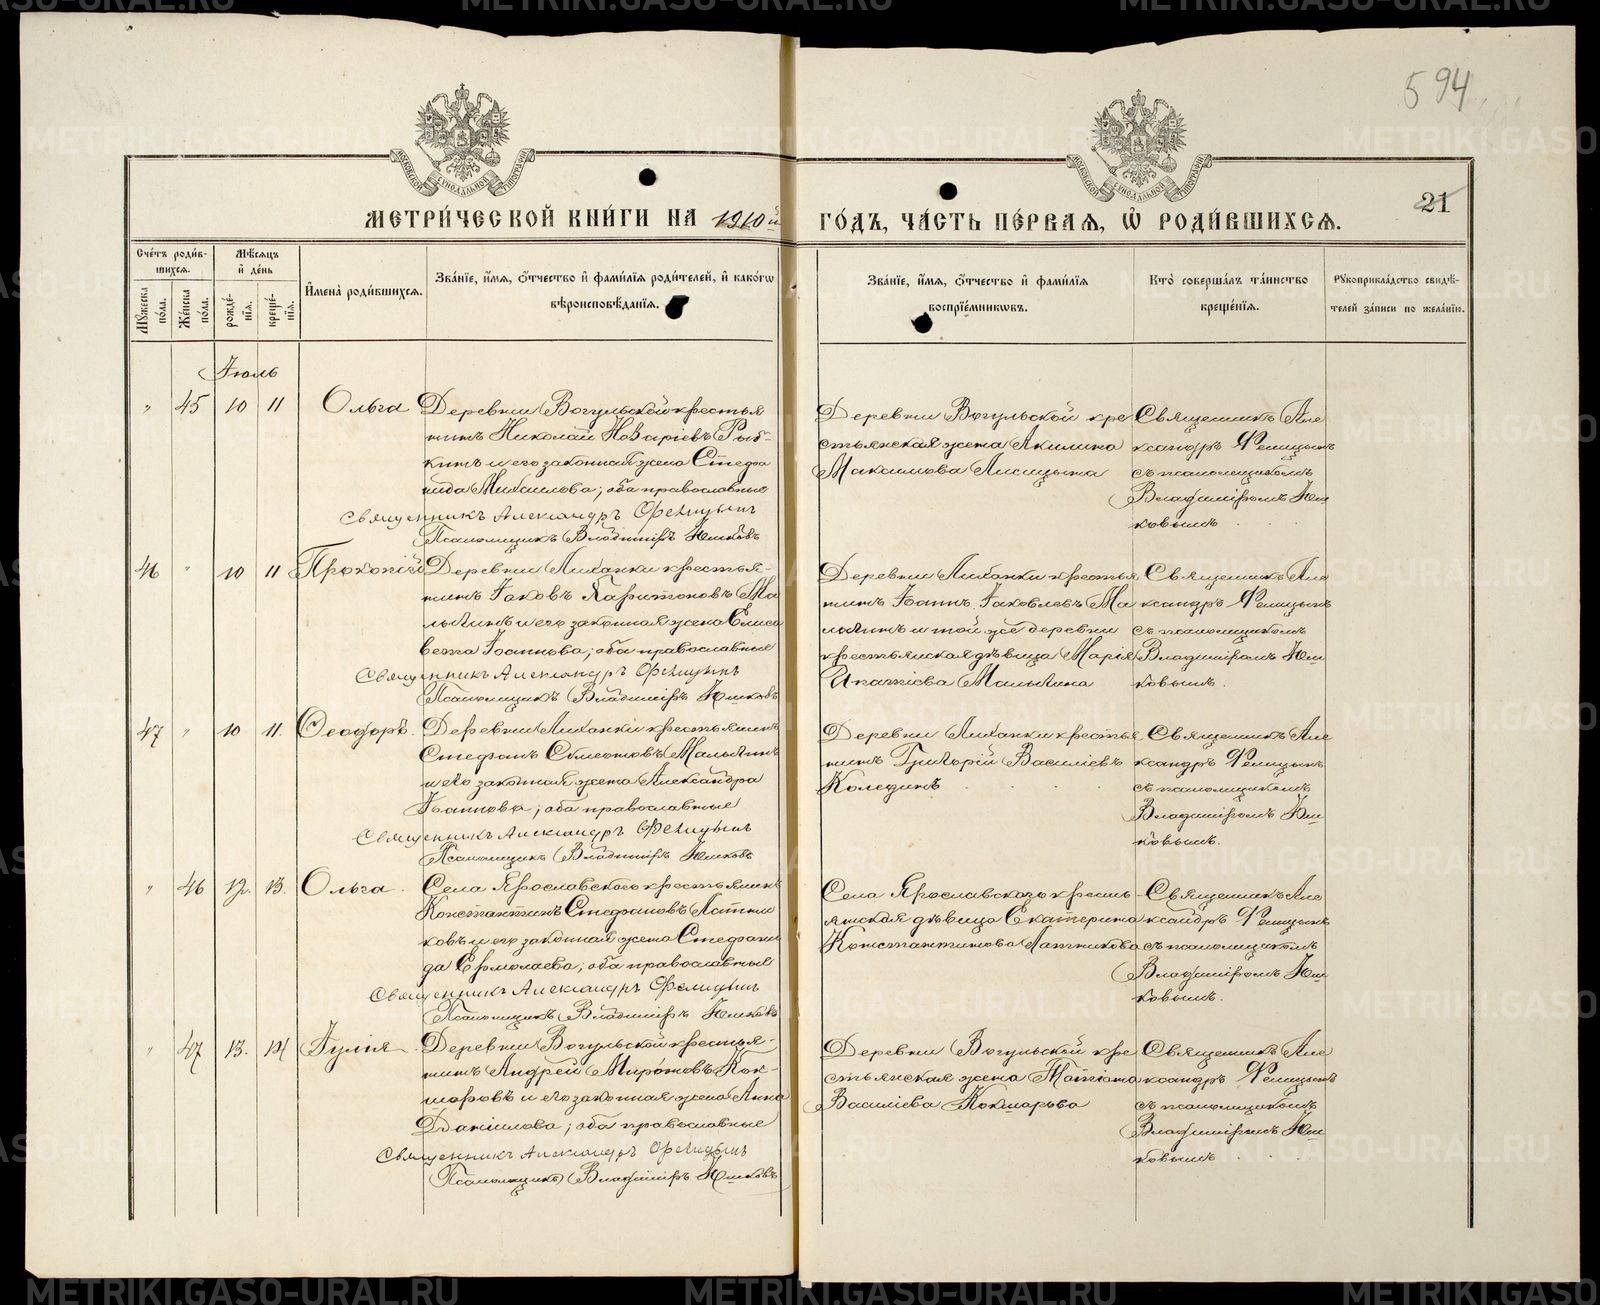 594
21
МОСКОВСКОЙ СѴНОДАЛЬНОЙ ТИПОГРАФІИ
МОСКОВСКОЙ СѴНОДАЛЬНОЙ ТИПОГРАФІИ
МЕТРИ́ЧЕСКОЙ КНИ́ГИ НА 1910й ГО́ДЪ, ЧА́СТЬ ПЕ́РВАѦ, Ѽ РОДИ́ВШИХСѦ.
Сче́тъ роди́вшихся.
Мꙋ́жеска по́ла.
Же́нска по́ла.
Мѣ́сяцъ и҆ де́нь
рожде́нїѧ.
креще́нїѧ.
И҆мена̀ роди́вшихся.
Зва́нїе, и҆́мѧ, ѻ҆́тчество и҆ фами́лїѧ роди́телей, и҆ како́гѡ
вѣроисповѣ́данїѧ.
Зва́нїе, и҆́мѧ, ѻ҆́тчество и҆ фами́лїѧ
воспрїе́мникѡвъ.
Кто̀ соверша́лъ та́инство
креще́нїѧ.
Рꙋкоприкла́дство свидѣ́-
телей за́писи по жела́нїю.
Іюль
" 45 10 11 Ольга
Деревни Вогульской крестья
нинъ Николай
Рыб-
кинъ и его законная жена Стефа
нида Михаилова; оба православные
Священникъ Александръ Фелицынъ
Псаломщикъ Владиміръ Юшковъ
Деревни Вогульской кре
стьянская жена Акилина
Максимова Лисицына
Священникъ Але
ксандръ Фелицынъ
съ псаломщикомъ
Владиміромъ Юш
ковымъ
46 " 10 11 Прокопій
Деревни Лиханки крестья-
нинъ Іаковъ Харитоновъ Ма
лыгинъ и его законная жена Елиса
вета Іоаннова; оба православные
Священникъ Александръ Фелицынъ
Псаломщикъ Владиміръ Юшковъ
Деревни Лиханки крестья
нинъ Іоаннъ Іаковлевъ Ма
лыгинъ и той же деревни
крестьянская дѣвица Марія
Малыгина
Священникъ Але
ксандръ Фелицынъ
съ псаломщикомъ
Владиміромъ Юш
ковымъ.
47 " 10 11. Ѳеодоръ.
Деревни Лиханки крестьянинъ
Стефанъ Симеоновъ Малыгинъ
и его законная жена Александра
Іоаннова; оба православные
Священникъ Александръ Фелицынъ
Псаломщикъ Владиміръ Юшковъ
Деревни Лиханки крестья
нинъ Григорій Василіевъ
Колединъ
Священникъ Але
ксандръ Фелицынъ
съ псаломщикомъ
Владиміромъ Юш
ковымъ.
" 46 12. 13. Ольга.
Села Ярославскаго крестьянинъ
Константинъ Стефановъ Латни
ковъ и его законная жена Стефани
да Ермолаева; оба православные
Священникъ Александръ Фелицынъ
Псаломщикъ Владиміръ Юшковъ
Села Ярославскаго кресть
янская дѣвица Екатерина
Константинова Латникова
Священникъ Але
ксандръ Фелицынъ
съ псаломщикомъ
Владиміромъ Юш
ковымъ.
" 47 13. 14 Іулія
Деревни Вогульской крестья-
нинъ Андрей Мироновъ Кок-
шаровъ и его законная жена Анна
Даніилова; оба православные
Священникъ Александръ Фелицынъ
Псаломщикъ Владиміръ Юшковъ
Деревни Вогульской кре
стьянская жена Татіана
Василіева Кокшарова
Священникъ Але
ксандръ Фелицынъ
съ псаломщикомъ
Владиміромъ Юш
ковымъ
METRIKI.GASO-URAL.RU